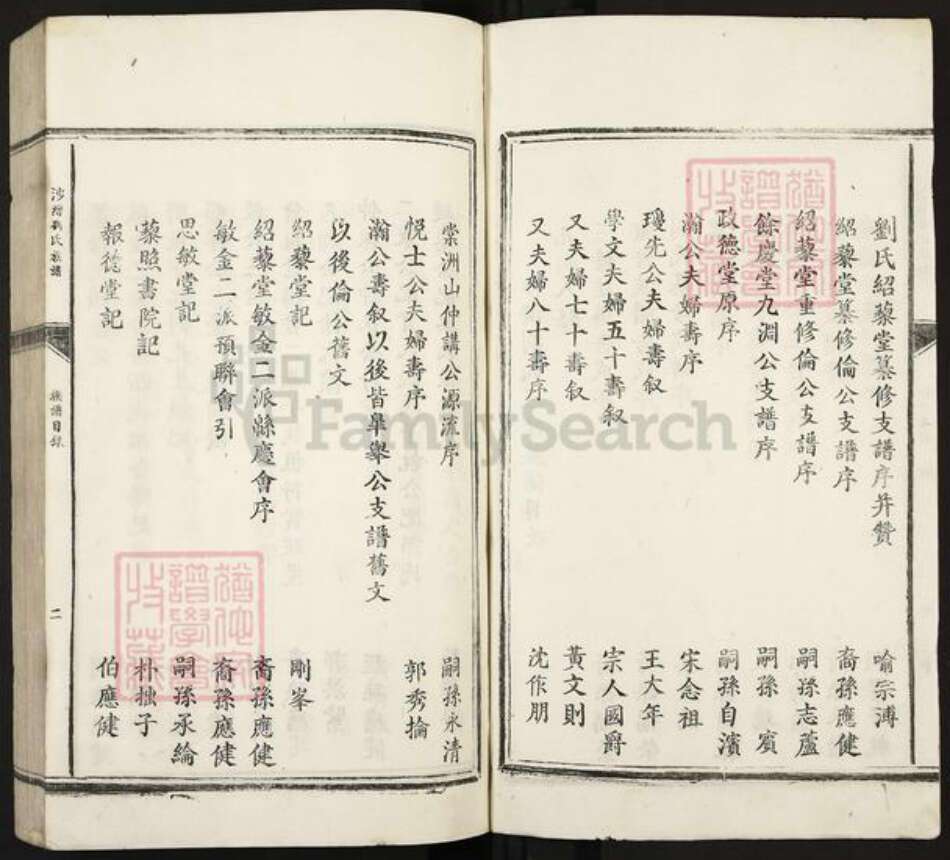 劉氏紹藜堂纂修支譜序并贊 喻宗溥
紹藜堂纂修倫公支譜序 裔孫應健
紹藜堂重修倫公支譜序 嗣孫志蘆
餘慶堂九淵公支譜序 嗣孫賓
政德堂原序 嗣孫自濱
瀚公夫婦壽序 宋念祖
瓊先公夫婦壽叙 王大年
學文夫婦五十壽叙 宗人國爵
又夫婦七十壽叙 黃文則
又夫婦八十壽序 沈作朋
棠洲山仲講公源流序 嗣孫永清
悅士公夫婦壽序 郭秀掄
瀚公壽叙以後皆皐舉公支譜舊文
以後倫公舊文
紹藜堂記 剛峯
紹藜堂敏金二派緜慶會序 裔孫應健
敏金二派預聯會引 裔孫應健
思敏堂記 嗣孫承綸
藜照書院記 朴拙子
報德堂記 伯應健
劉氏族譜
族譜目錄
二
FamilySearch